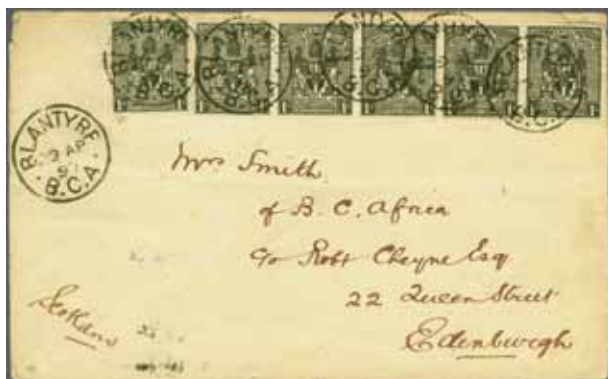 BLANTYRE
B.C.A.
BLANTYRE
AP
B.C.A.
Mrs Smith
of B. C. Africa
c/o Robt Cheyne Esq
22 Queen Street
Edenburgh
Scotland